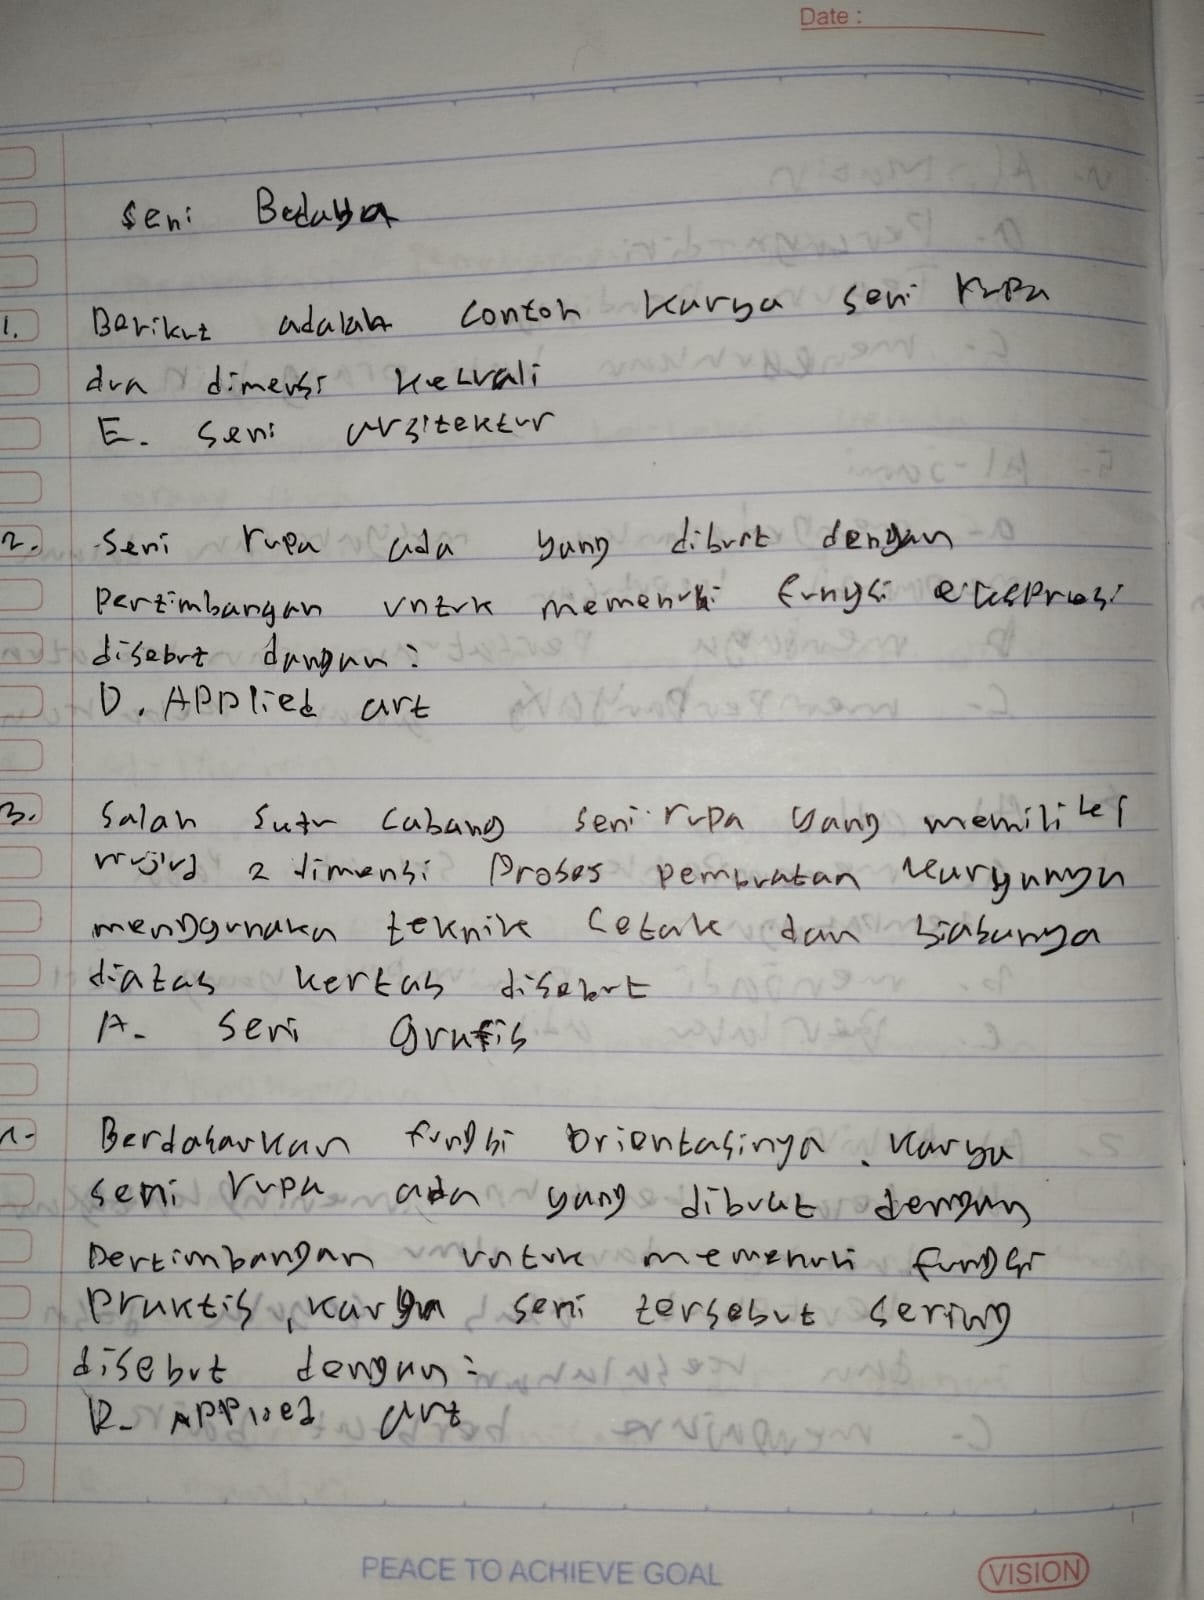 Date :
Seni Bedaya
1. Berikut adalah Contoh Karya Seni rupa
dua dimensi kecuali
E. Seni arsitektur
2. Seni rupa ada yang dibuat dengan
pertimbangan untuk memenuhi fungsi ekspresi
disebut dangan :
D. Applied art
3. Salah Satu Cabang Seni rupa yang memiliki
wujud 2 dimensi Proses pembuatan Karyanya
menggunaka teknik Cetak dan biasanya
diatas kertas disebut
A. Seni grafis
Berdasarkan fungsi Orientasinya. Karya
Seni rupa ada yang dibuat dengan
pertimbangan untuk memenuhi fungsi
praktis, karya seni tersebut sering
disebut dengan :
Applied art
PEACE TO ACHIEVE GOAL
VISION